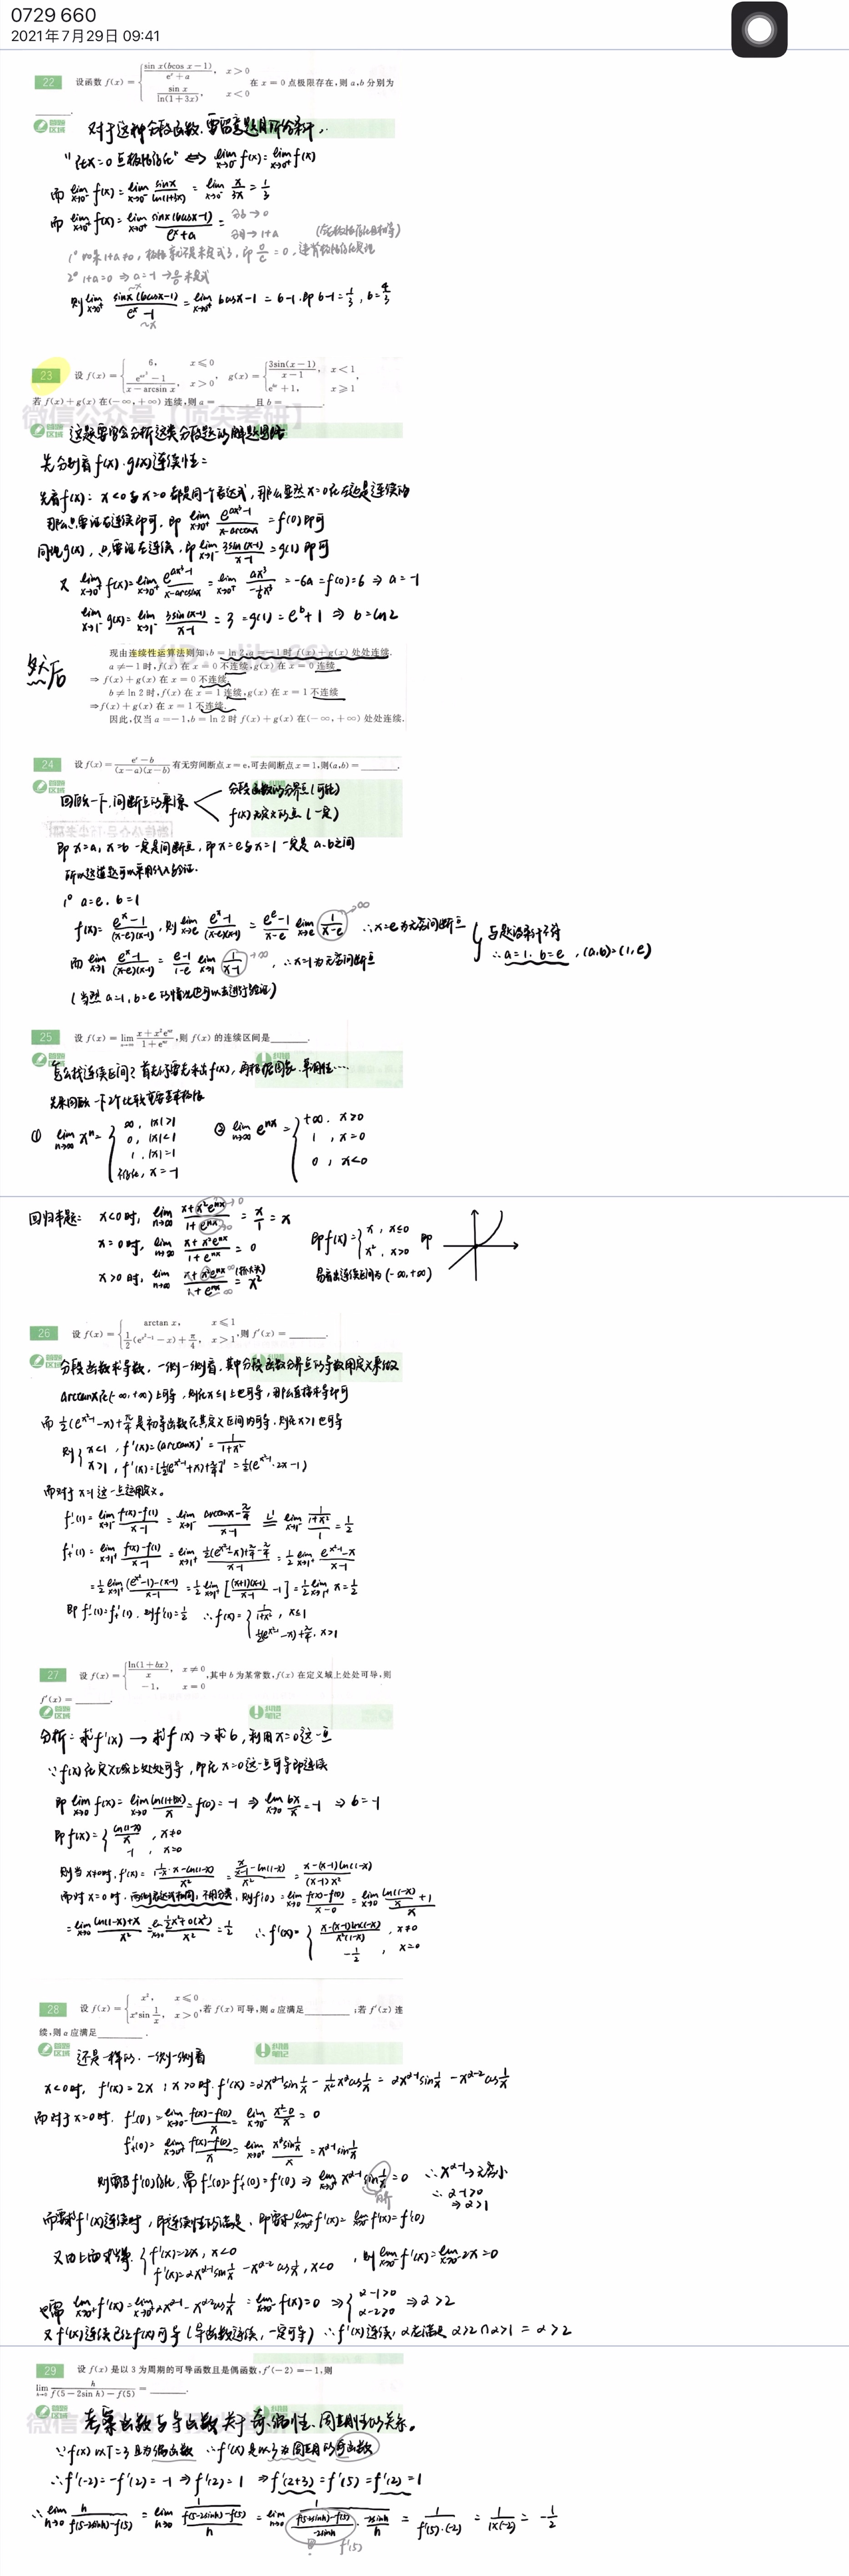 0729 660
2021年7月29日 09:41
22 设函数 f(x) = { sin x(bcos x − 1) / (e^x + a), x > 0; sin x / ln(1 + 3x), x < 0 在 x = 0 点极限存在,则 a,b 分别为
______.
对于这种分段函数,要留意题目所给条件,
"在x=0点极限存在" ⇔ lim x→0⁻ f(x) = lim x→0⁺ f(x)
而 lim x→0⁻ f(x) = lim x→0⁻ sinx / ln(1+3x) = lim x→0⁻ x/3x = 1/3
而 lim x→0⁺ f(x) = lim x→0⁺ sinx(bcosx−1) / (e^x+a) = 分子→0 分母→1+a
2° 1+a=0 ⇒ a=−1 → 0/0 未定式
则 lim x→0⁺ sinx(bcosx−1) / (e^x−1) = lim x→0⁺ bcosx−1 = b−1 即 b−1 = 1/3, b = 4/3
23 设 f(x) = { 6, x ≤ 0; (e^{ax³} − 1) / (x − arcsin x), x > 0, g(x) = { 3sin(x − 1) / (x − 1), x < 1; e^{bx} + 1, x ≥ 1,
若 f(x) + g(x) 在(−∞,+∞) 连续,则 a = ______ 且 b = ______.
微信公众号【顶尖考研】
这题要学会分析这类分段题的解题思路
先分别看 f(x)、g(x)连续性:
先看f(x): x<0与x=0都是同一个表达式,那么显然x=0处左边是连续的
那么只要证右连续即可,即 lim x→0⁺ (e^{ax³}−1) / (x−arcsinx) = f(0)即可
同理g(x),只需证左连续,即 lim x→1⁻ 3sin(x−1) / (x−1) = g(1)即可
又 lim x→0⁺ f(x) = lim x→0⁺ (e^{ax³}−1) / (x−arcsinx) = lim x→0⁺ ax³ / (−1/6 x³) = −6a = f(0) = 6 ⇒ a=−1
lim x→1⁻ g(x) = lim x→1⁻ 3sin(x−1) / (x−1) = 3 = g(1) = e^b+1 ⇒ b=ln2
然后
现由连续性运算法则知,b = ln 2,a = −1 时 f(x) + g(x) 处处连续.
a ≠ −1 时,f(x) 在 x = 0 不连续,g(x) 在 x = 0 连续
⇒ f(x) + g(x) 在 x = 0 不连续.
b ≠ ln 2 时,f(x) 在 x = 1 连续,g(x) 在 x = 1 不连续
⇒ f(x) + g(x) 在 x = 1 不连续.
因此,仅当 a = −1,b = ln 2 时 f(x) + g(x) 在(−∞,+∞) 处处连续.
24 设 f(x) = (e^x − b) / ((x − a)(x − b)) 有无穷间断点 x = e,可去间断点 x = 1,则(a,b) = ______.
回顾一下,间断点的来源 分段函数的分界点(可能)
f(x)无定义的点(一定)
即x=a, x=b一定是间断点,即x=e与x=1一定是a、b之间
所以这道题可以采用代入验证.
1° a=e, b=1
f(x) = (e^x−1) / ((x−e)(x−1)), 则 lim x→e (e^x−1) / ((x−e)(x−1)) = (e^e−1)/(e−1) lim x→e 1/(x−e) →∞ ∴x=e为无穷间断点
而 lim x→1 (e^x−1) / ((x−e)(x−1)) = (e−1)/(1−e) lim x→1 1/(x−1) →∞, ∴x=1为无穷间断点
与题设条件不符
∴a=1, b=e, (a,b)=(1,e)
(当然 a=1, b=e 的情况也可以去进行验证)
25 设 f(x) = lim n→∞ (x + x²e^{nx}) / (1 + e^{nx}),则 f(x) 的连续区间是______.
怎么找连续区间?首先需要先求出f(x),再根据图象、单调性…
先来回顾一下2个比较重要基本极限
① lim n→∞ x^n = { ∞, |x|>1; 0, |x|<1; 1, |x|=1; 不存在, x=−1
② lim n→∞ e^{nx} = { +∞, x>0; 1, x=0; 0, x<0
回归本题: x<0时, lim n→∞ (x+x²e^{nx}) / (1+e^{nx}) = x/1 = x
x=0时, lim n→∞ (x+x²e^{nx}) / (1+e^{nx}) = 0
x>0时, lim n→∞ (x+x²e^{nx}) / (1+e^{nx}) (抓大头) = x²
即f(x) = { x, x≤0; x², x>0 即
易看出连续区间为(−∞,+∞)
26 设 f(x) = { arctan x, x ≤ 1; 1/2(e^{x²−1} − x) + π/4, x > 1,则 f′(x) = ______.
分段函数求导数,一侧一侧看,其中分段函数分界点的导数用定义来做
arctanx在(−∞,+∞)上可导,则在x≤1上也可导,那么直接求导即可
而 1/2(e^{x²−1}−x)+π/4 是初等函数在其定义区间内可导,则在x>1也可导
则 { x<1, f′(x)=(arctanx)′ = 1/(1+x²)
x>1, f′(x)=[1/2(e^{x²−1}+x)+π/4]′ = 1/2(e^{x²−1}·2x−1)
而对于x=1这一点运用定义.
f′₋(1) = lim x→1⁻ (f(x)−f(1))/(x−1) = lim x→1⁻ (arctanx−π/4)/(x−1) = lim x→1⁻ (1/(1+x²))/1 = 1/2
f′₊(1) = lim x→1⁺ (f(x)−f(1))/(x−1) = lim x→1⁺ (1/2(e^{x²−1}−x)+π/4−π/4)/(x−1) = 1/2 lim x→1⁺ (e^{x²−1}−x)/(x−1)
= 1/2 lim x→1⁺ ((e^{x²−1}−1)−(x−1))/(x−1) = 1/2 lim x→1⁺ [(x+1)(x−1)/(x−1) −1] = 1/2 lim x→1⁺ x = 1/2
即f′₋(1)=f′₊(1), 则f′(1)=1/2 ∴f(x) = { 1/(1+x²), x≤1; 1/2(e^{x²−1}−x)+π/4, x>1
27 设 f(x) = { ln(1 + bx) / x, x ≠ 0; −1, x = 0,其中 b 为某常数,f(x) 在定义域上处处可导,则
f′(x) = ______.
分析: 求f′(x) → 求f(x) → 求b, 利用x=0这一点
∵f(x)在定义域上处处可导,即在x=0这一点可导即连续
即 lim x→0 f(x) = lim x→0 ln(1+bx)/x = f(0) = −1 ⇒ lim x→0 bx/x = −1 ⇒ b=−1
即f(x) = { ln(1−x)/x, x≠0; −1, x=0
则当x≠0时, f′(x) = (1/(1−x)·x−ln(1−x))/x² = (x/(x−1)−ln(1−x))/x² = (x−(x−1)ln(1−x))/((x−1)x²)
而对x=0时,两侧表达式相同,不用分类, 则f′(0) = lim x→0 (f(x)−f(0))/(x−0) = lim x→0 (ln(1−x)/x+1)/x
= lim x→0 (ln(1−x)+x)/x² = lim −1/2x²+o(x²)/x² = −1/2 ∴f′(x) = { (x−(x−1)ln(1−x))/(x²(1−x)), x≠0; −1/2, x=0
28 设 f(x) = { x², x ≤ 0; x^α sin 1/x, x > 0,若 f(x) 可导,则 α 应满足______;若 f′(x) 连
续,则 α 应满足______.
还是一样的,一侧一侧看
x<0时, f′(x)=2x; x>0时, f′(x)=αx^{α−1}sin1/x − 1/x² x^α cos1/x = αx^{α−1}sin1/x − x^{α−2}cos1/x
而对于x=0时, f′₋(0) = lim x→0⁻ (f(x)−f(0))/x = lim x→0⁻ (x²−0)/x = 0
f′₊(0) = lim x→0⁺ (f(x)−f(0))/x = lim x→0⁺ x^α sin1/x / x = x^{α−1}sin1/x
则需要f′(0)存在,需f′₋(0)=f′₊(0)=f′(0) ⇒ lim x→0⁺ x^{α−1}sin1/x = 0 ∴x^{α−1}→无穷小
∴α−1>0
⇒α>1
而要求f′(x)连续时,即连续性的满足,即需求 lim x→0⁺ f′(x) = lim x→0⁻ f′(x) = f′(0)
又由上面求得, { f′(x)=2x, x<0; f′(x)=αx^{α−1}sin1/x − x^{α−2}cos1/x, x<0, 则 lim x→0⁻ f′(x) = lim x→0⁻ 2x = 0
也需 lim x→0⁺ f′(x) = lim x→0⁺ αx^{α−1} − x^{α−2}cos1/x = lim x→0⁻ f(x) = 0 ⇒ { α−1>0; α−2>0 ⇒ α>2
又f′(x)连续已经f(x)可导(导函数连续,一定可导) ∴f′(x)连续,α应满足 α>2∩α>1 = α>2
29 设 f(x) 是以 3 为周期的可导函数且是偶函数,f′(−2) = −1,则
lim h→0 h / (f(5 − 2sin h) − f(5)) = ______.
考察函数与导函数关于奇偶性、周期性的关系。
∵f(x)以T=3且为偶函数 ∴f′(x)是以3为周期的奇函数
∴f′(−2)=−f′(2)=−1 ⇒ f′(2)=1 ⇒ f′(2+3)=f′(5)=f′(2)=1
∴ lim h→0 h/(f(5−2sinh)−f(5)) = lim h→0 1/((f(5−2sinh)−f(5))/h) = lim h→0 1/((f(5−2sinh)−f(5))/(−2sinh) · −2sinh/h) = 1/(f′(5)·(−2)) = 1/(1×(−2)) = −1/2
f′(5)